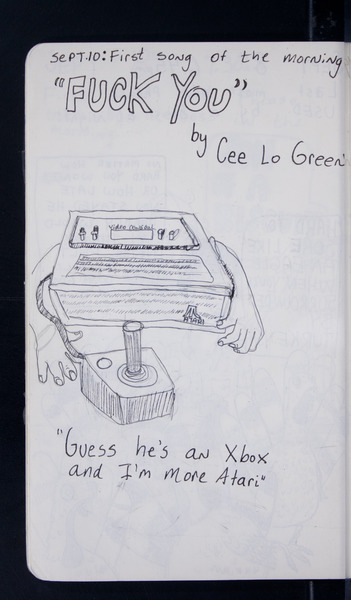 SEPT.10: First song of the morning
"FUCK YOU"
by Cee Lo Green
Video Computer
ATARI
"Guess he's an Xbox
and I'm more Atari"